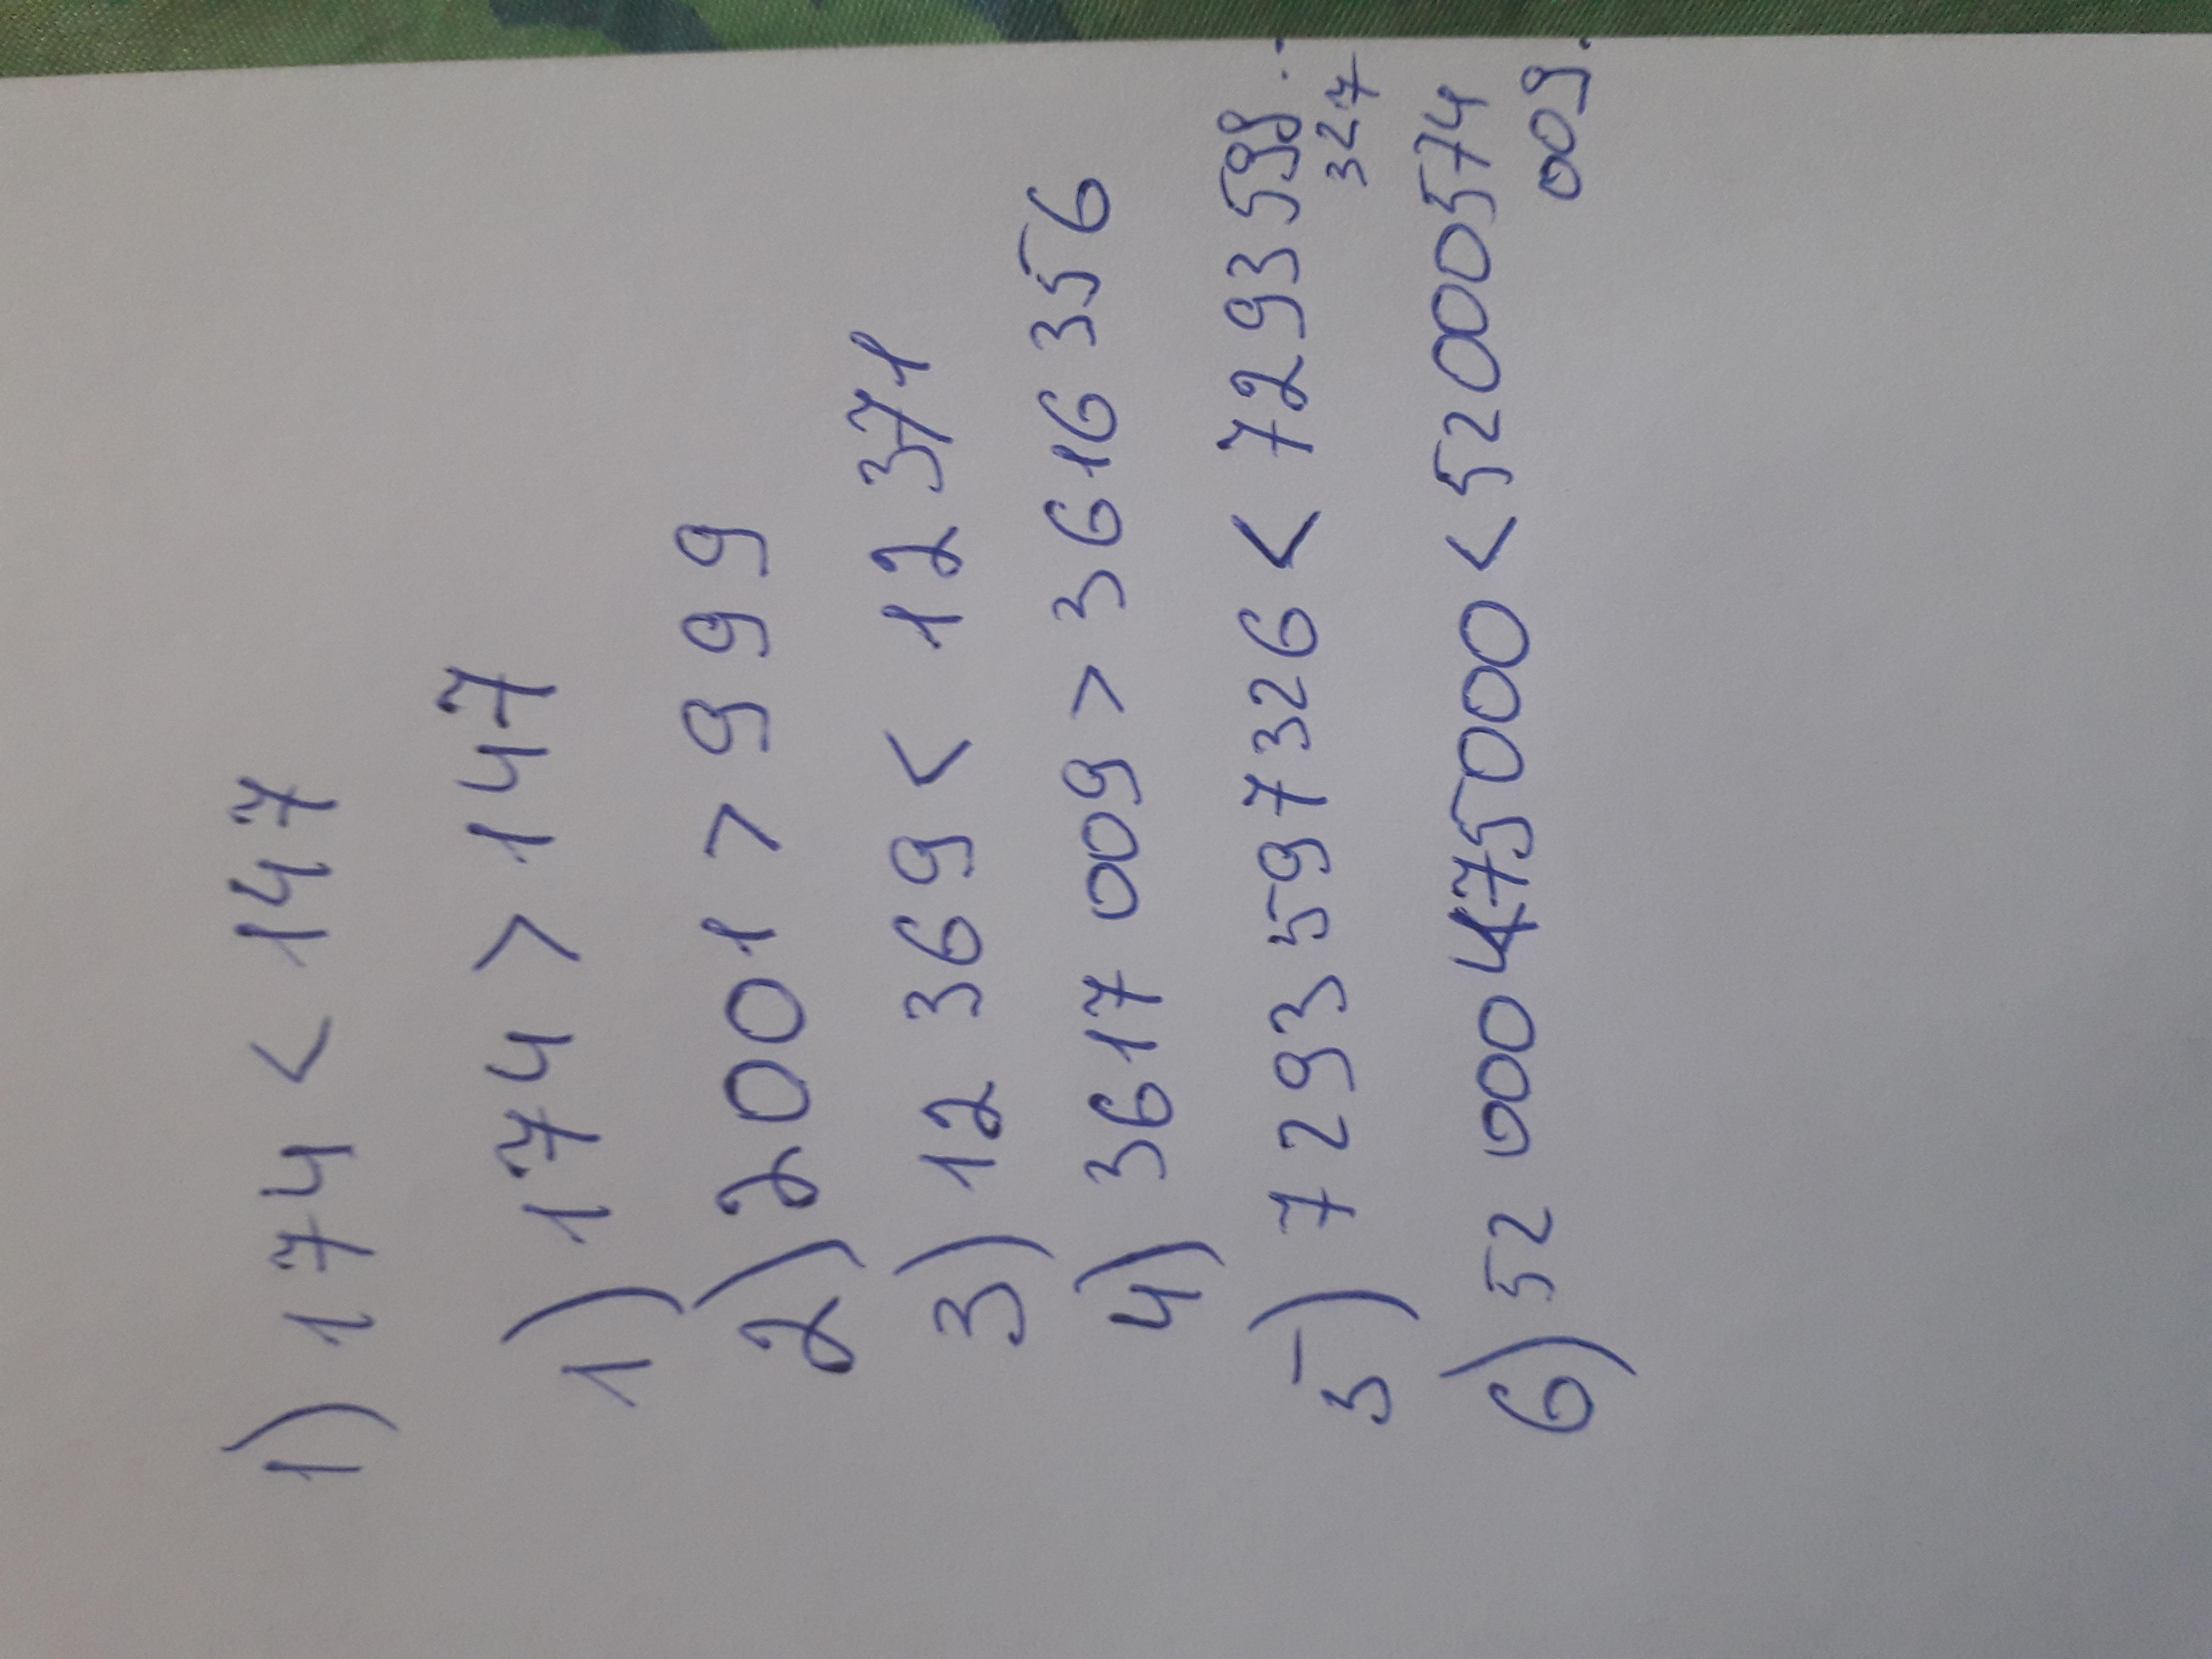 1) 174 < 147
1) 174 > 147
2) 2001 > 999
3) 12 369 < 12 371
4) 3617 009 > 3616 356
5) 7293 597326 < 7293598
327
6) 52 000 475000 < 52000574
009.